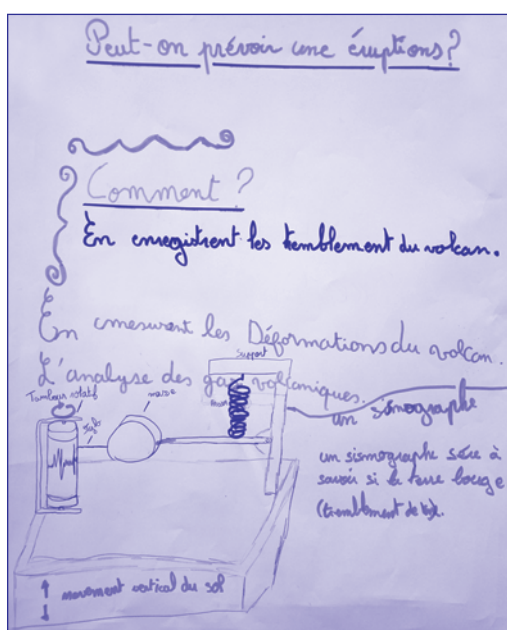 Peut-on prévoir une éruptions?
Comment ?
En enregistrent les temblement du volcan.
En mesurent les Déformations du volcan.
L'analyse des gaz volcaniques.
support
Tambour rotatif
masse
un sismographe
un sismographe sére à
savoir si la terre bouge
(tremblement de
mouvement vertical du sol